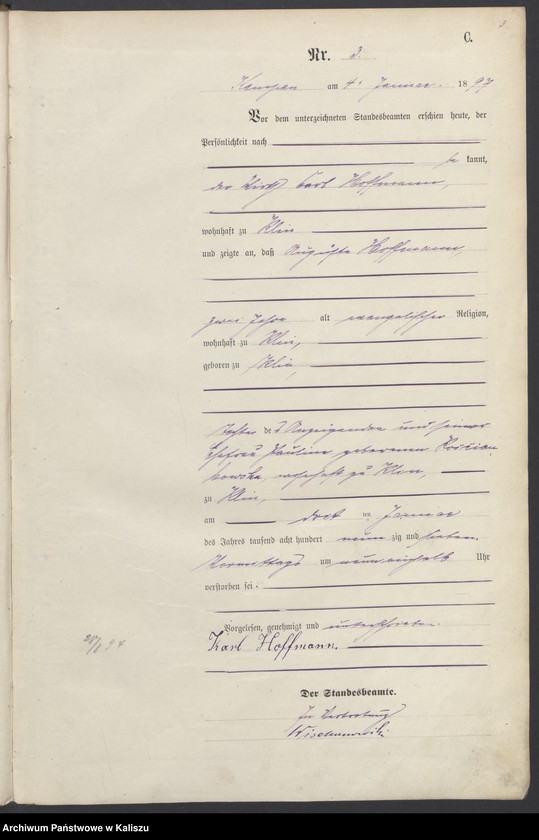 C.
Nr. 3.
Kempen am 4. Januar. 1897
Vor dem unterzeichneten Standesbeamten erschien heute, der
Persönlichkeit nach
be kannt,
der Wirth Carl Hoffmann,
wohnhaft zu Klin
und zeigte an, daß Auguste Hoffmann,
zwei Jahre alt evangelischer Religion,
wohnhaft zu Klin,
geboren zu Klin,
Tochter des Anzeigenden und seiner
Ehefrau Pauline geborenen
wohnhaft zu Klin,
zu Klin,
am ten Januar
des Jahres tausend acht hundert neun zig und sieben
Vormittags um Uhr
verstorben sei.
Vorgelesen, genehmigt und unterschrieben.
Karl Hoffmann.
Der Standesbeamte.
In Vertretung
Archiwum Państwowe w Kaliszu